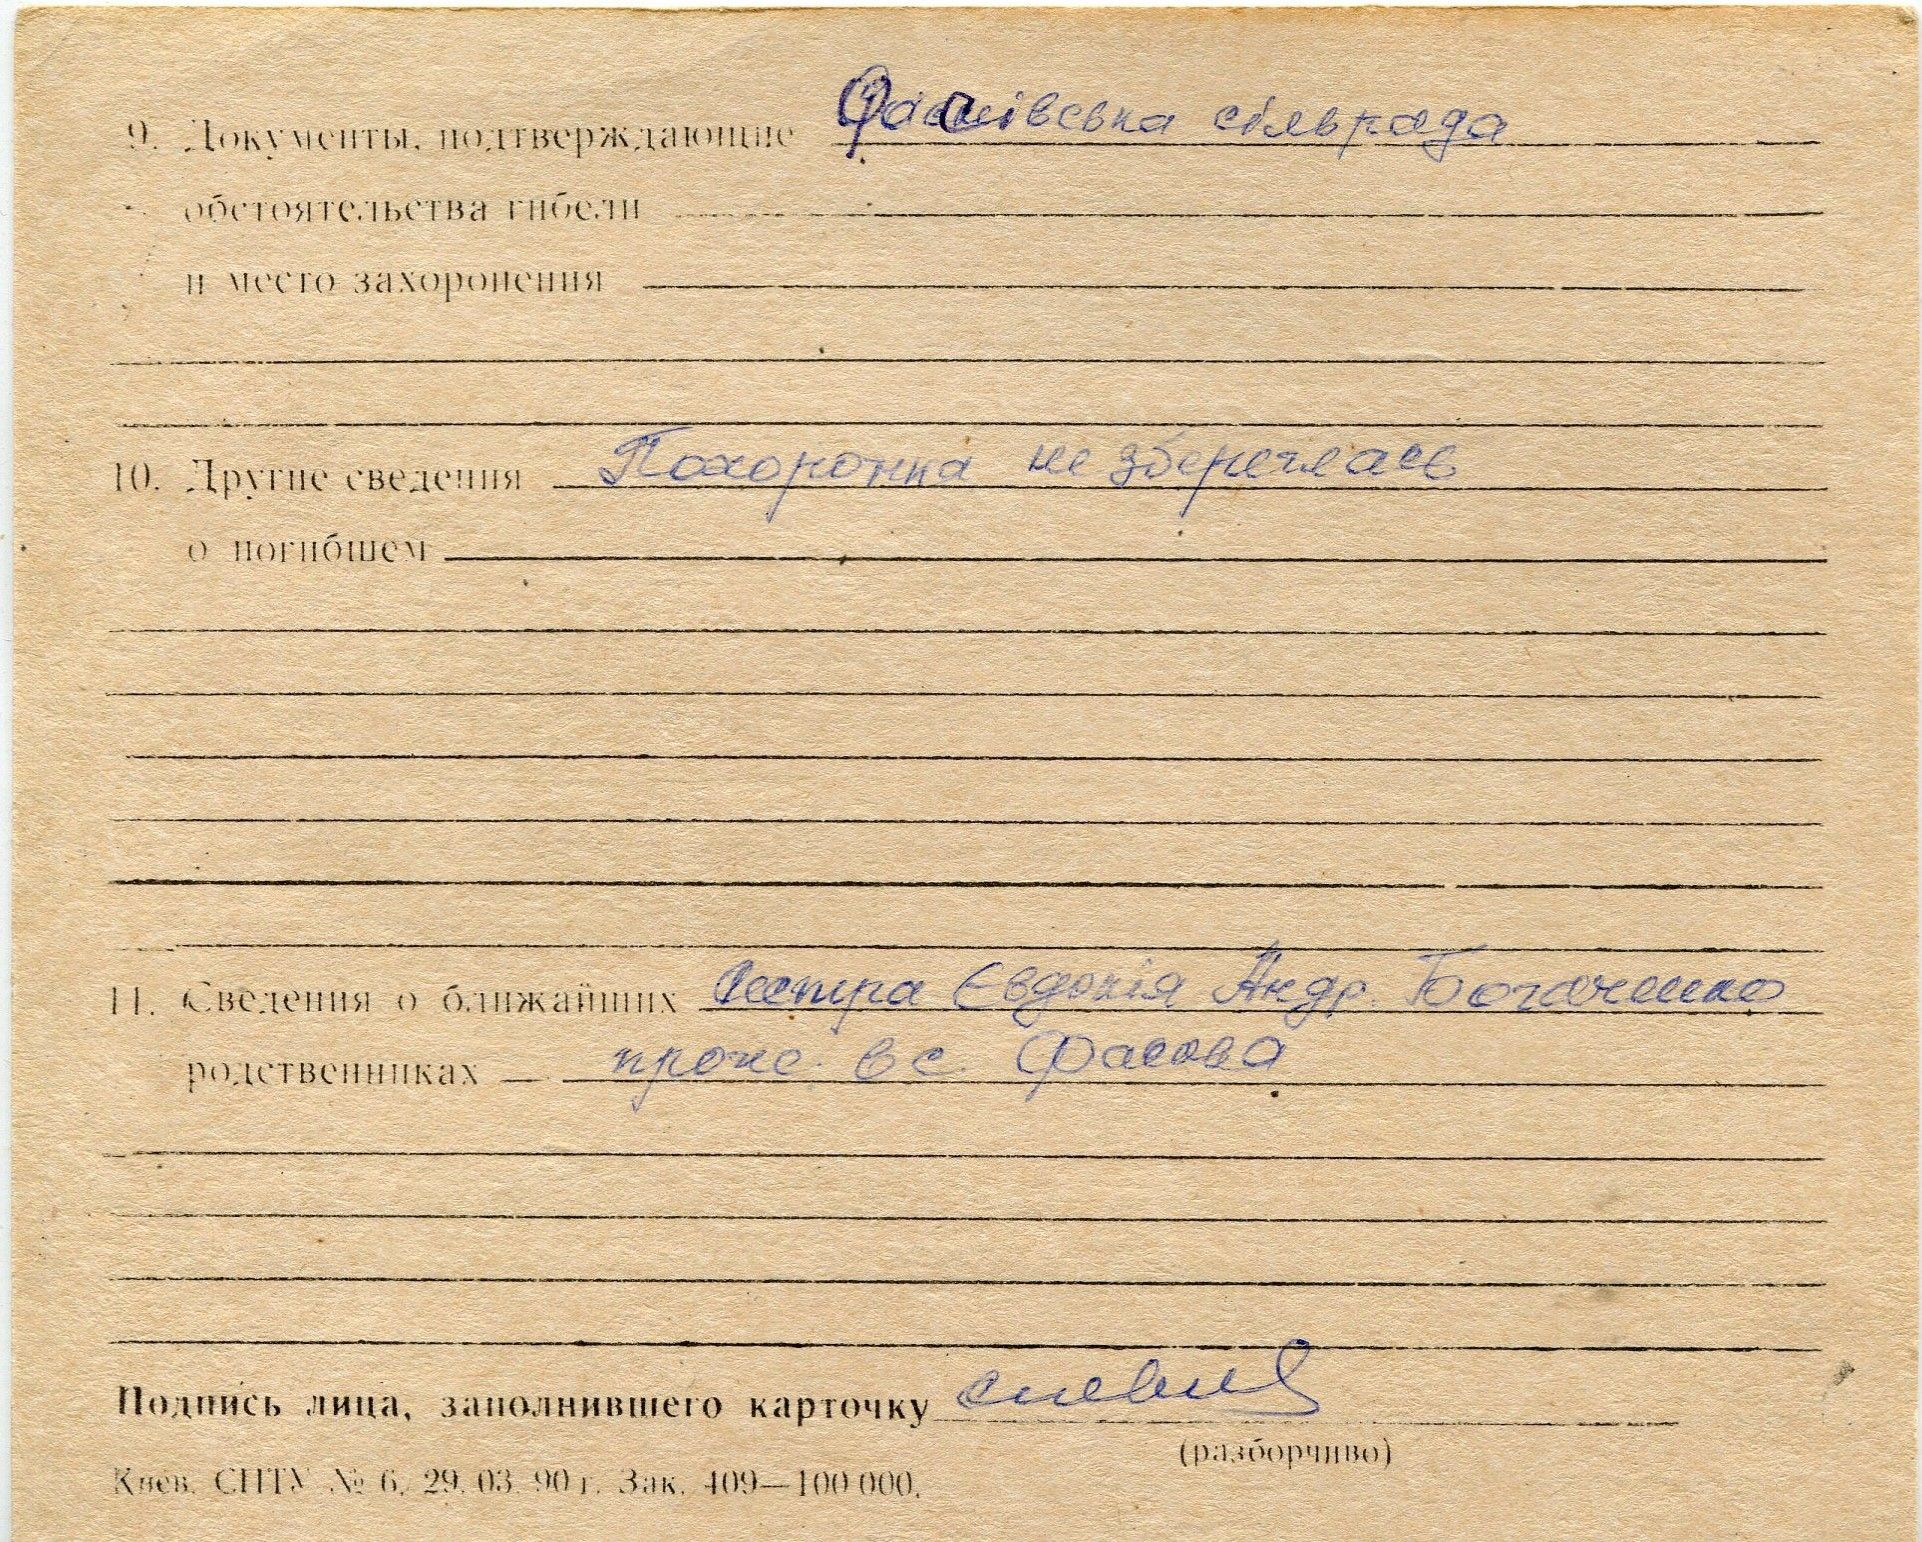 9. Документы, подтверждающие Фасівська сільрада
обстоятельства гибели
и место захоронения
10. Другие сведения Похоронка не збереглась
о погибшем
11. Сведения о ближайших Сестра Євдокія Андр. Богаченко
родственниках прож. в с. Фасова
Подпись лица, заполнившего карточку
(разборчиво)
Киев. СПТУ № 6. 29. 03. 90 г. Зак. 409—100 000.